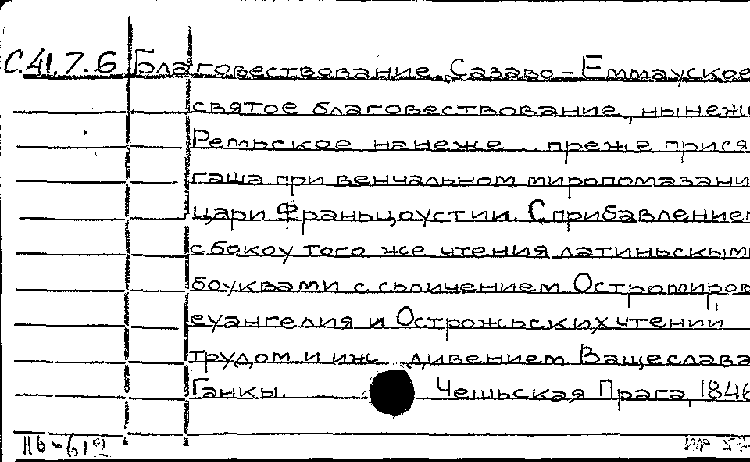 С.41.7.6 Благовествование. Сазаво-Еммауское
святое благовествование, ныне же
Ремьское на неже прежде прися
гаша при венчальном миропомазани
цари Франьцоустии. С прибавлением
с бокоу того же чтения латиньскыми
боуквами с съличением Остромиров
еуангелия и Острожьских чтений
трудом и иж дивением Вацеслава
Ганкы. Чешьская Прага, 1846